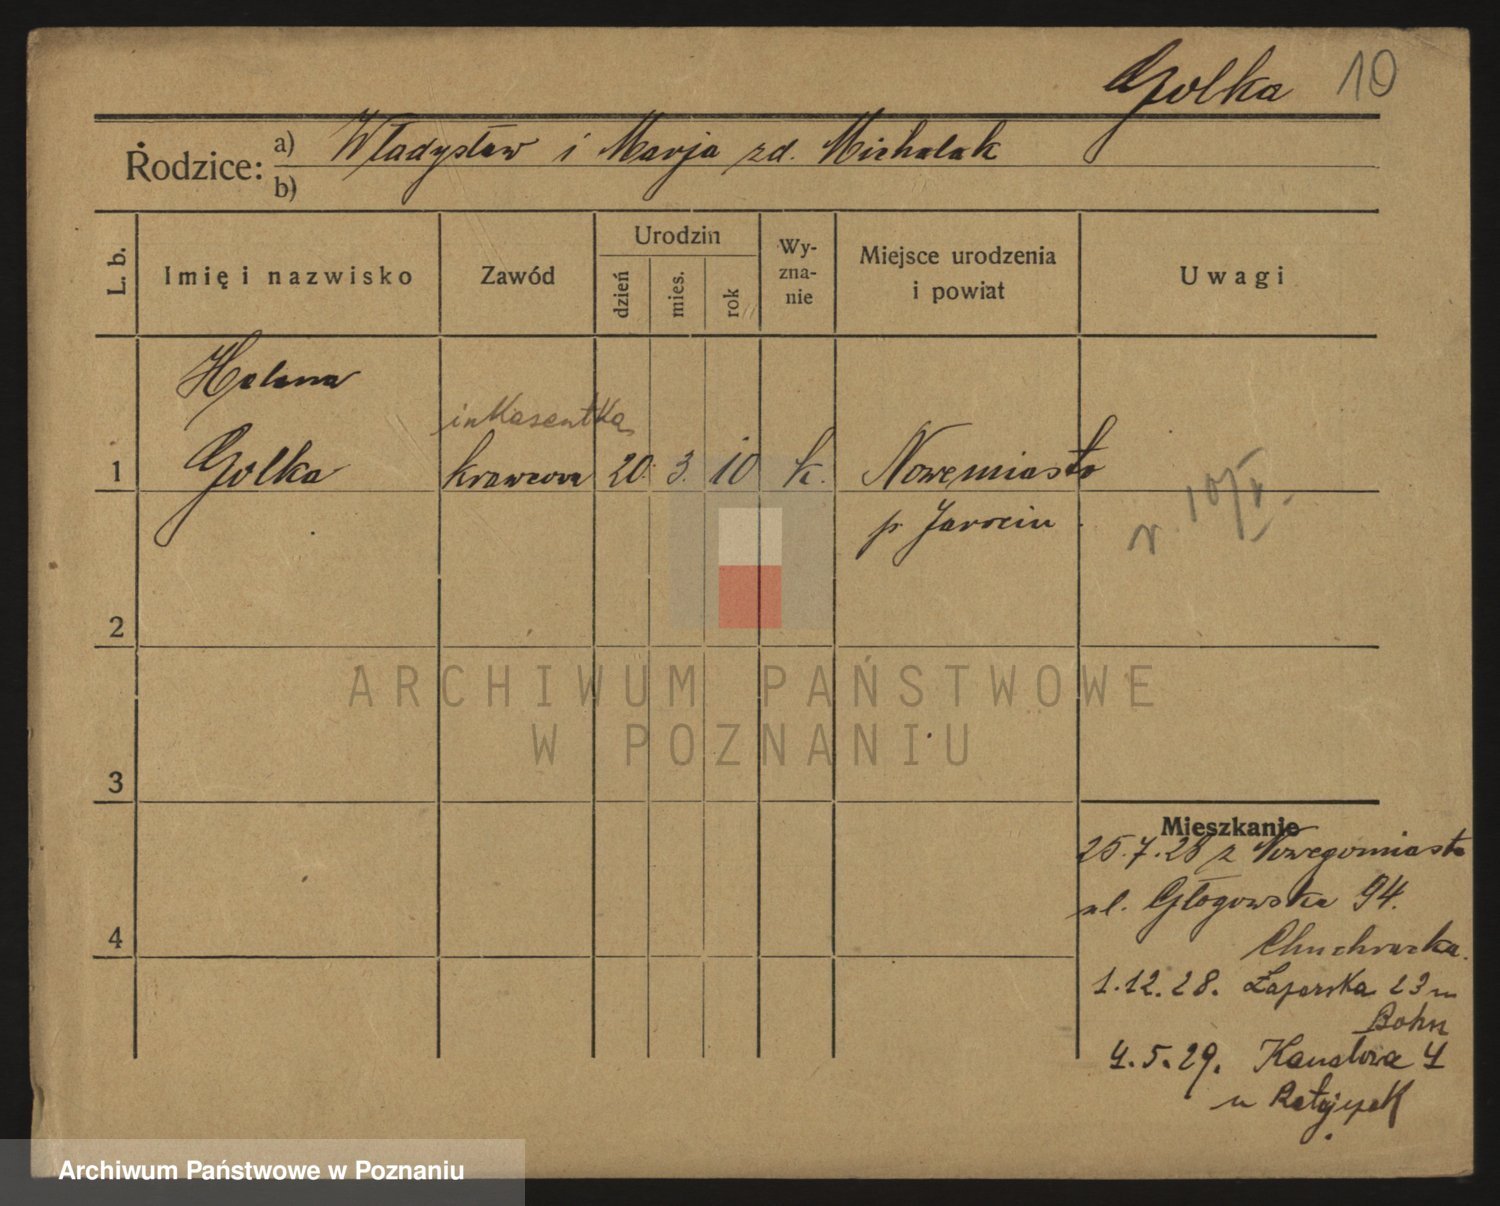 Golka 10
Rodzice: a) Władysław i Marja zd. Michalak
b)
L. b.
Imię i nazwisko
Zawód
Urodzin
dzień
mies.
rok
Wy-
zna-
nie
Miejsce urodzenia
i powiat
Uwagi
Helena
inkasentka
1 Golka krawcowa 20. 3. 10 k. Nowemiasto
p. Jarocin
2
3
4
Mieszkanie
25.7.28 z Nowegomiasta
ul. Głogowska 94.
1.12.28. 23 u
Bohn
4.5.29. 4
u Ratajczak
ARCHIWUM PAŃSTWOWE
W POZNANIU
Archiwum Państwowe w Poznaniu